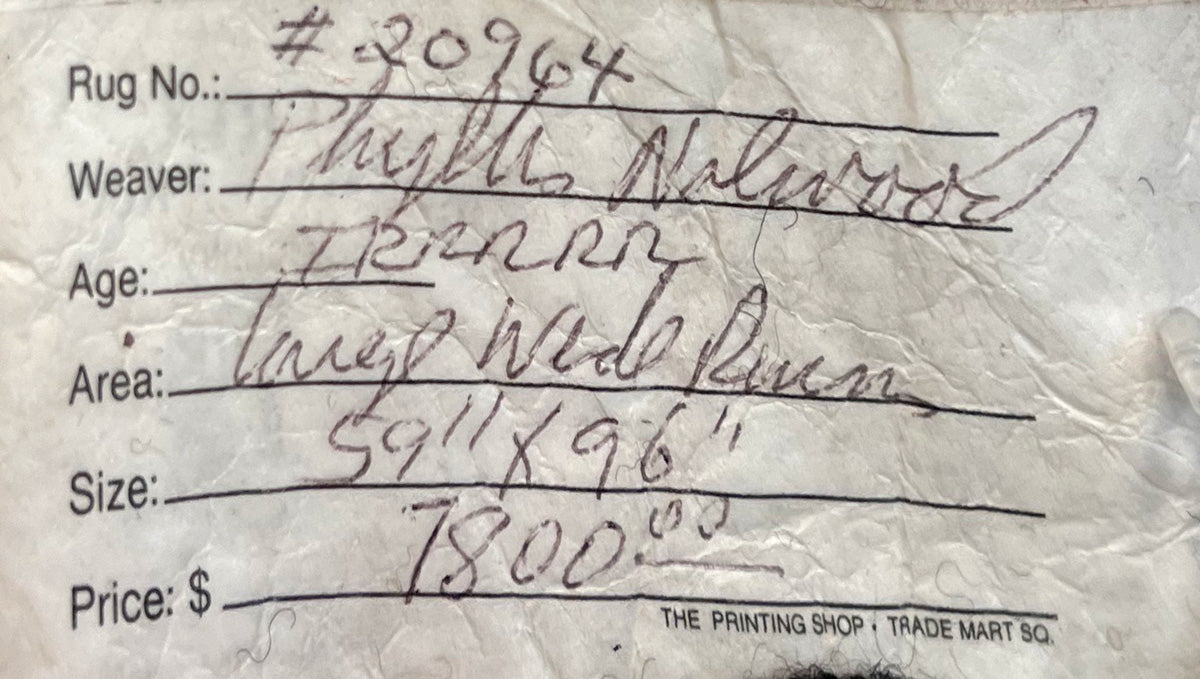 Rug No.: # 20964
Weaver: Phyllis
Age: IRRRRR
Area: Wide Ruins
Size: 59" X 96"
Price: $ 7800.00
THE PRINTING SHOP · TRADE MART SQ.